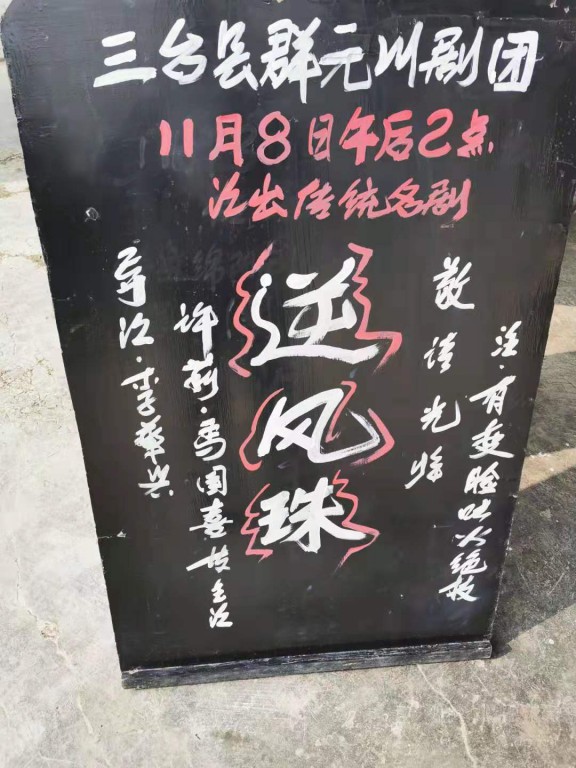 三台县群元川剧团
11月8日午后2点
演出传统名剧
注·有变脸吐火绝技
敬请光临
逆风珠
许莉·国喜主演
导演·李華兴